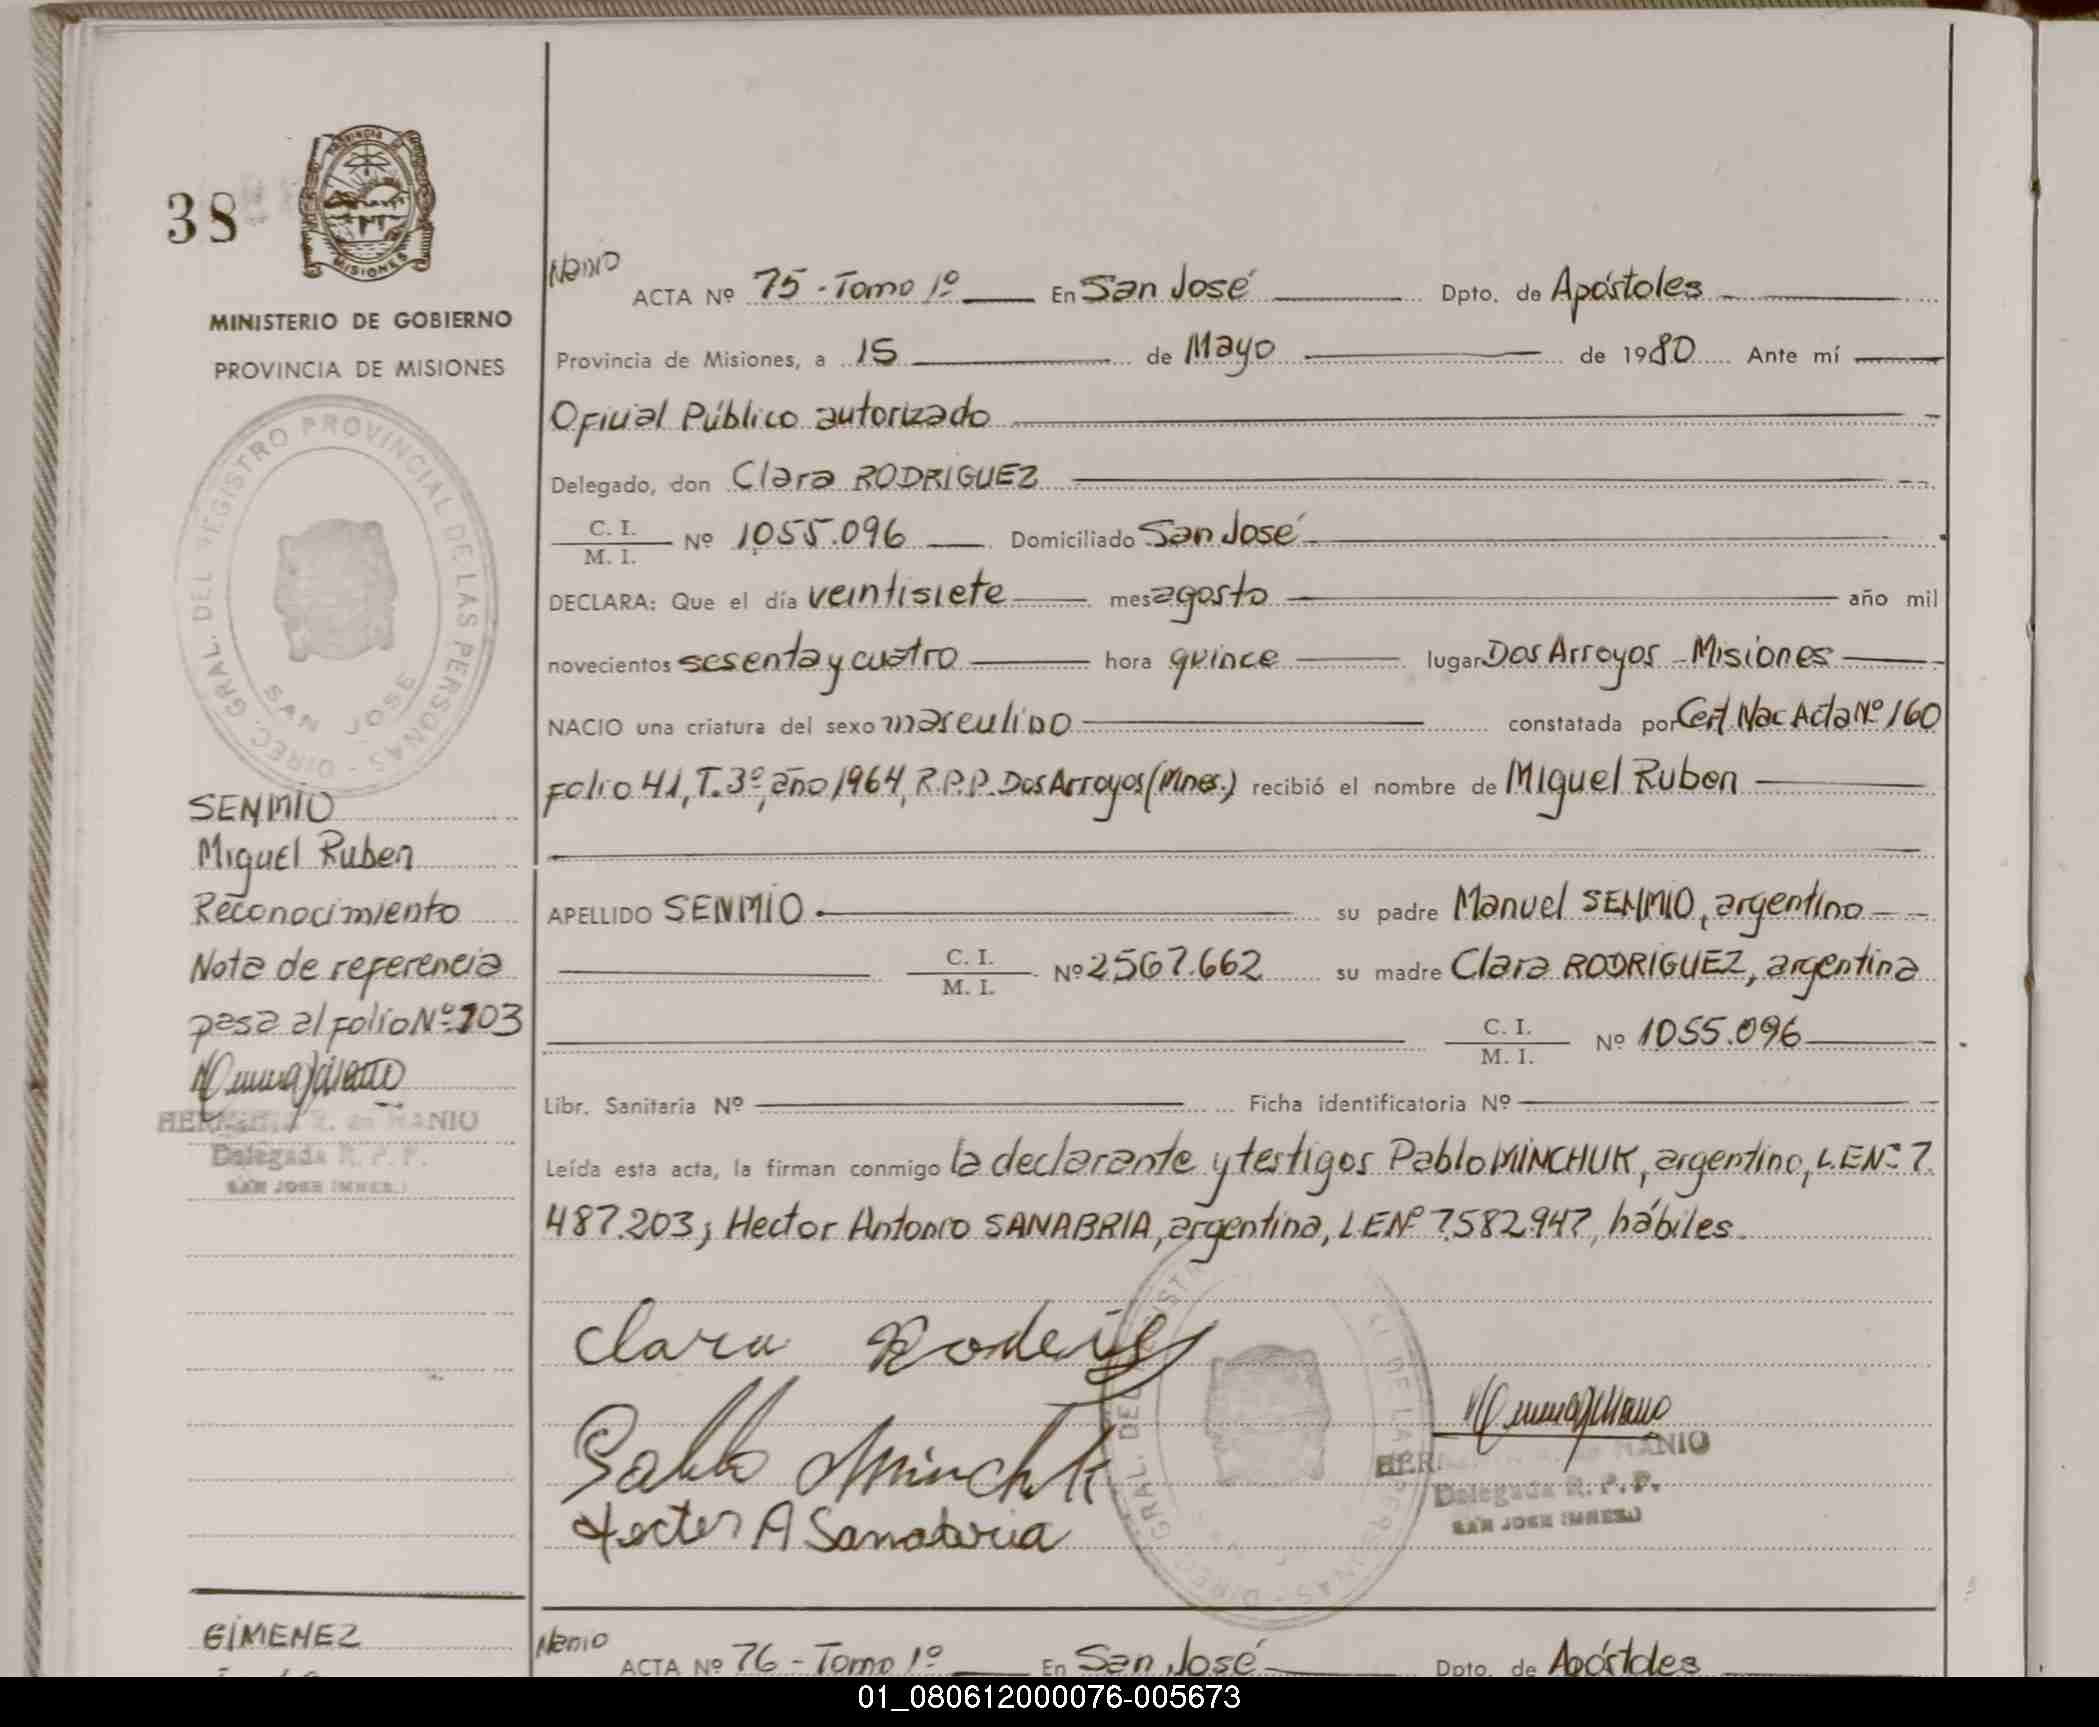 38
PROVINCIA DE
MISIONES
MINISTERIO DE GOBIERNO
PROVINCIA DE MISIONES
DIREC. GRAL. DEL REGISTRO PROVINCIAL DE LAS PERSONAS -
SAN JOSE
SENMIO
Miguel Ruben
Reconocimiento
Nota de referencia
pasa al folio Nº 103
de MANIO
Delegada R. P. P.
SAN JOSE (MNES.)
GIMENEZ
ACTA Nº 75 - Tomo 1º En San José Dpto. de Apóstoles
Provincia de Misiones, a 15 de Mayo de 1980 Ante mí
Oficial Público autorizado
Delegado, don Clara RODRIGUEZ
C. I.
M. I. Nº 1055.096 Domiciliado San José
DECLARA: Que el día veintisiete mes agosto año mil
novecientos sesenta y cuatro hora quince lugar Dos Arroyos - Misiones
NACIO una criatura del sexo masculino constatada por Cert. Nac Acta Nº 160
folio 41, T. 3º, año 1964, R.P.P. Dos Arroyos (Mnes.) recibió el nombre de Miguel Ruben
APELLIDO SENMIO su padre Manuel SENMIO, argentino
C. I.
M. I. Nº 2567.662 su madre Clara RODRIGUEZ, argentina
C. I.
M. I. Nº 1055.096
Libr. Sanitaria Nº Ficha identificatoria Nº
Leída esta acta, la firman conmigo la declarante y testigos Pablo MINCHUK, argentino, L.E Nº 7.
487.203; Hector Antonio SANABRIA, argentino, L.E Nº 7.582.947, hábiles.
Clara
Pablo Minchuk
Hector A Sanabria
MANIO
Delegada R. P. P.
SAN JOSE (MNES.)
ACTA Nº 76 - Tomo 1º En San José Dpto. de Apóstoles
01_080612000076-005673